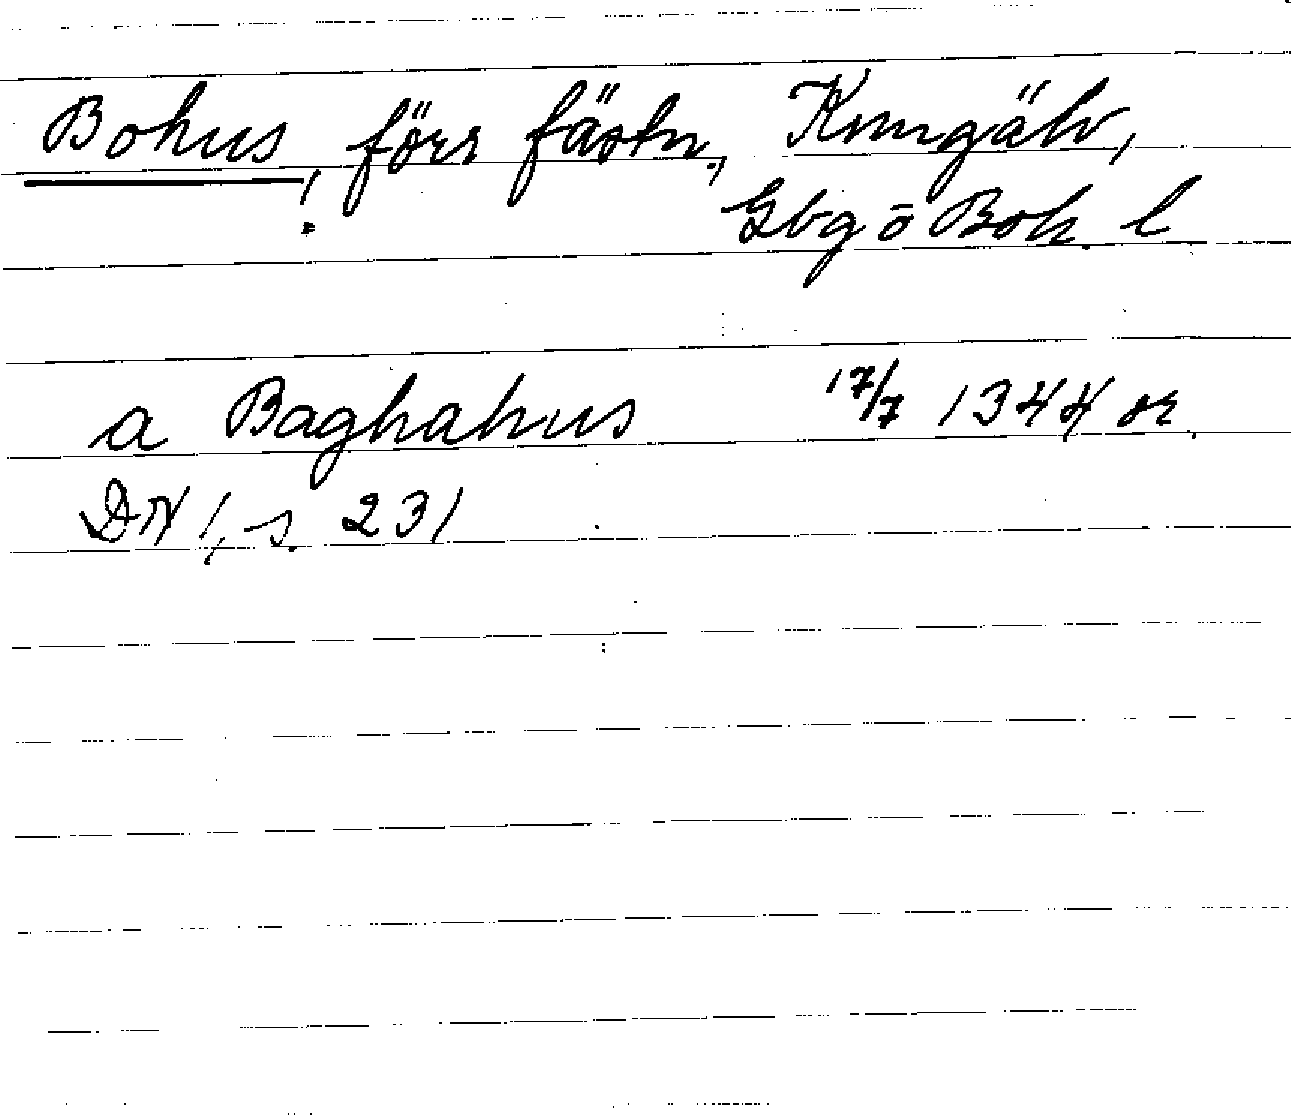 Bohus, förr fästn., Kungälv,
!
Gbg o Boh. l
a Baghahus 17/7 1344 or.
DN 1, s. 231